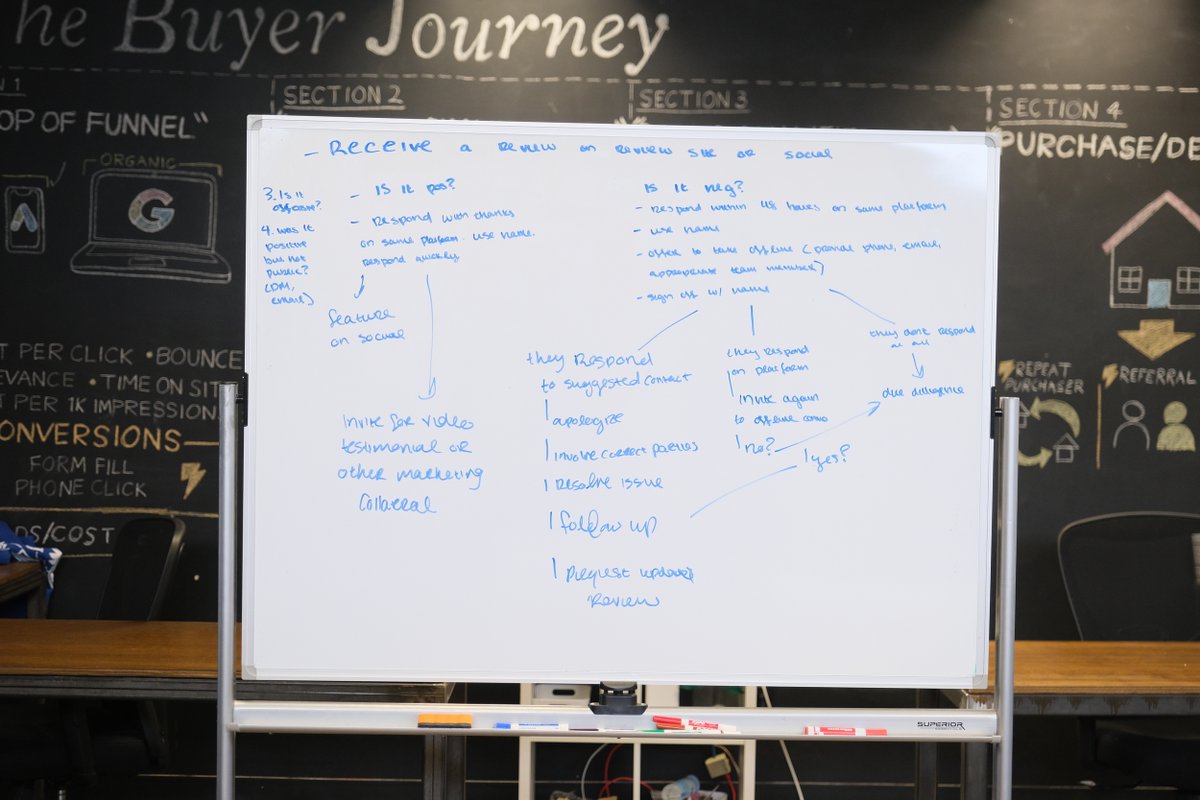 he Buyer Journey
N 1
SECTION 2
SECTION 3
SECTION 4
OP OF FUNNEL"
PURCHASE/DE
ORGANIC
G
- Receive a review on review site or social
3. Is it offsite?
4. was it
positive
but not
public?
(DM,
email)
- Is it pos?
- Respond with thanks
on same platform. use name.
respond quickly
feature
on social
Invite for video
testimonial or
other marketing
collateral
Is it neg?
- Respond within 48 hours on same platform
- use name
- offer to take offline (provide phone, email,
appropriate team member)
- sign off w/ name
they respond
to suggested contact
apologize
involve correct parties
resolve issue
follow up
request updated
review
they respond
on platform
invite again
to offline convo
no?
yes?
they don't respond
at all
due diligence
T PER CLICK • BOUNCE
EVANCE • TIME ON SIT
T PER 1K IMPRESSION
ONVERSIONS
FORM FILL
PHONE CLICK
DS/COST
REPEAT
PURCHASER
REFERRAL
SUPERIOR